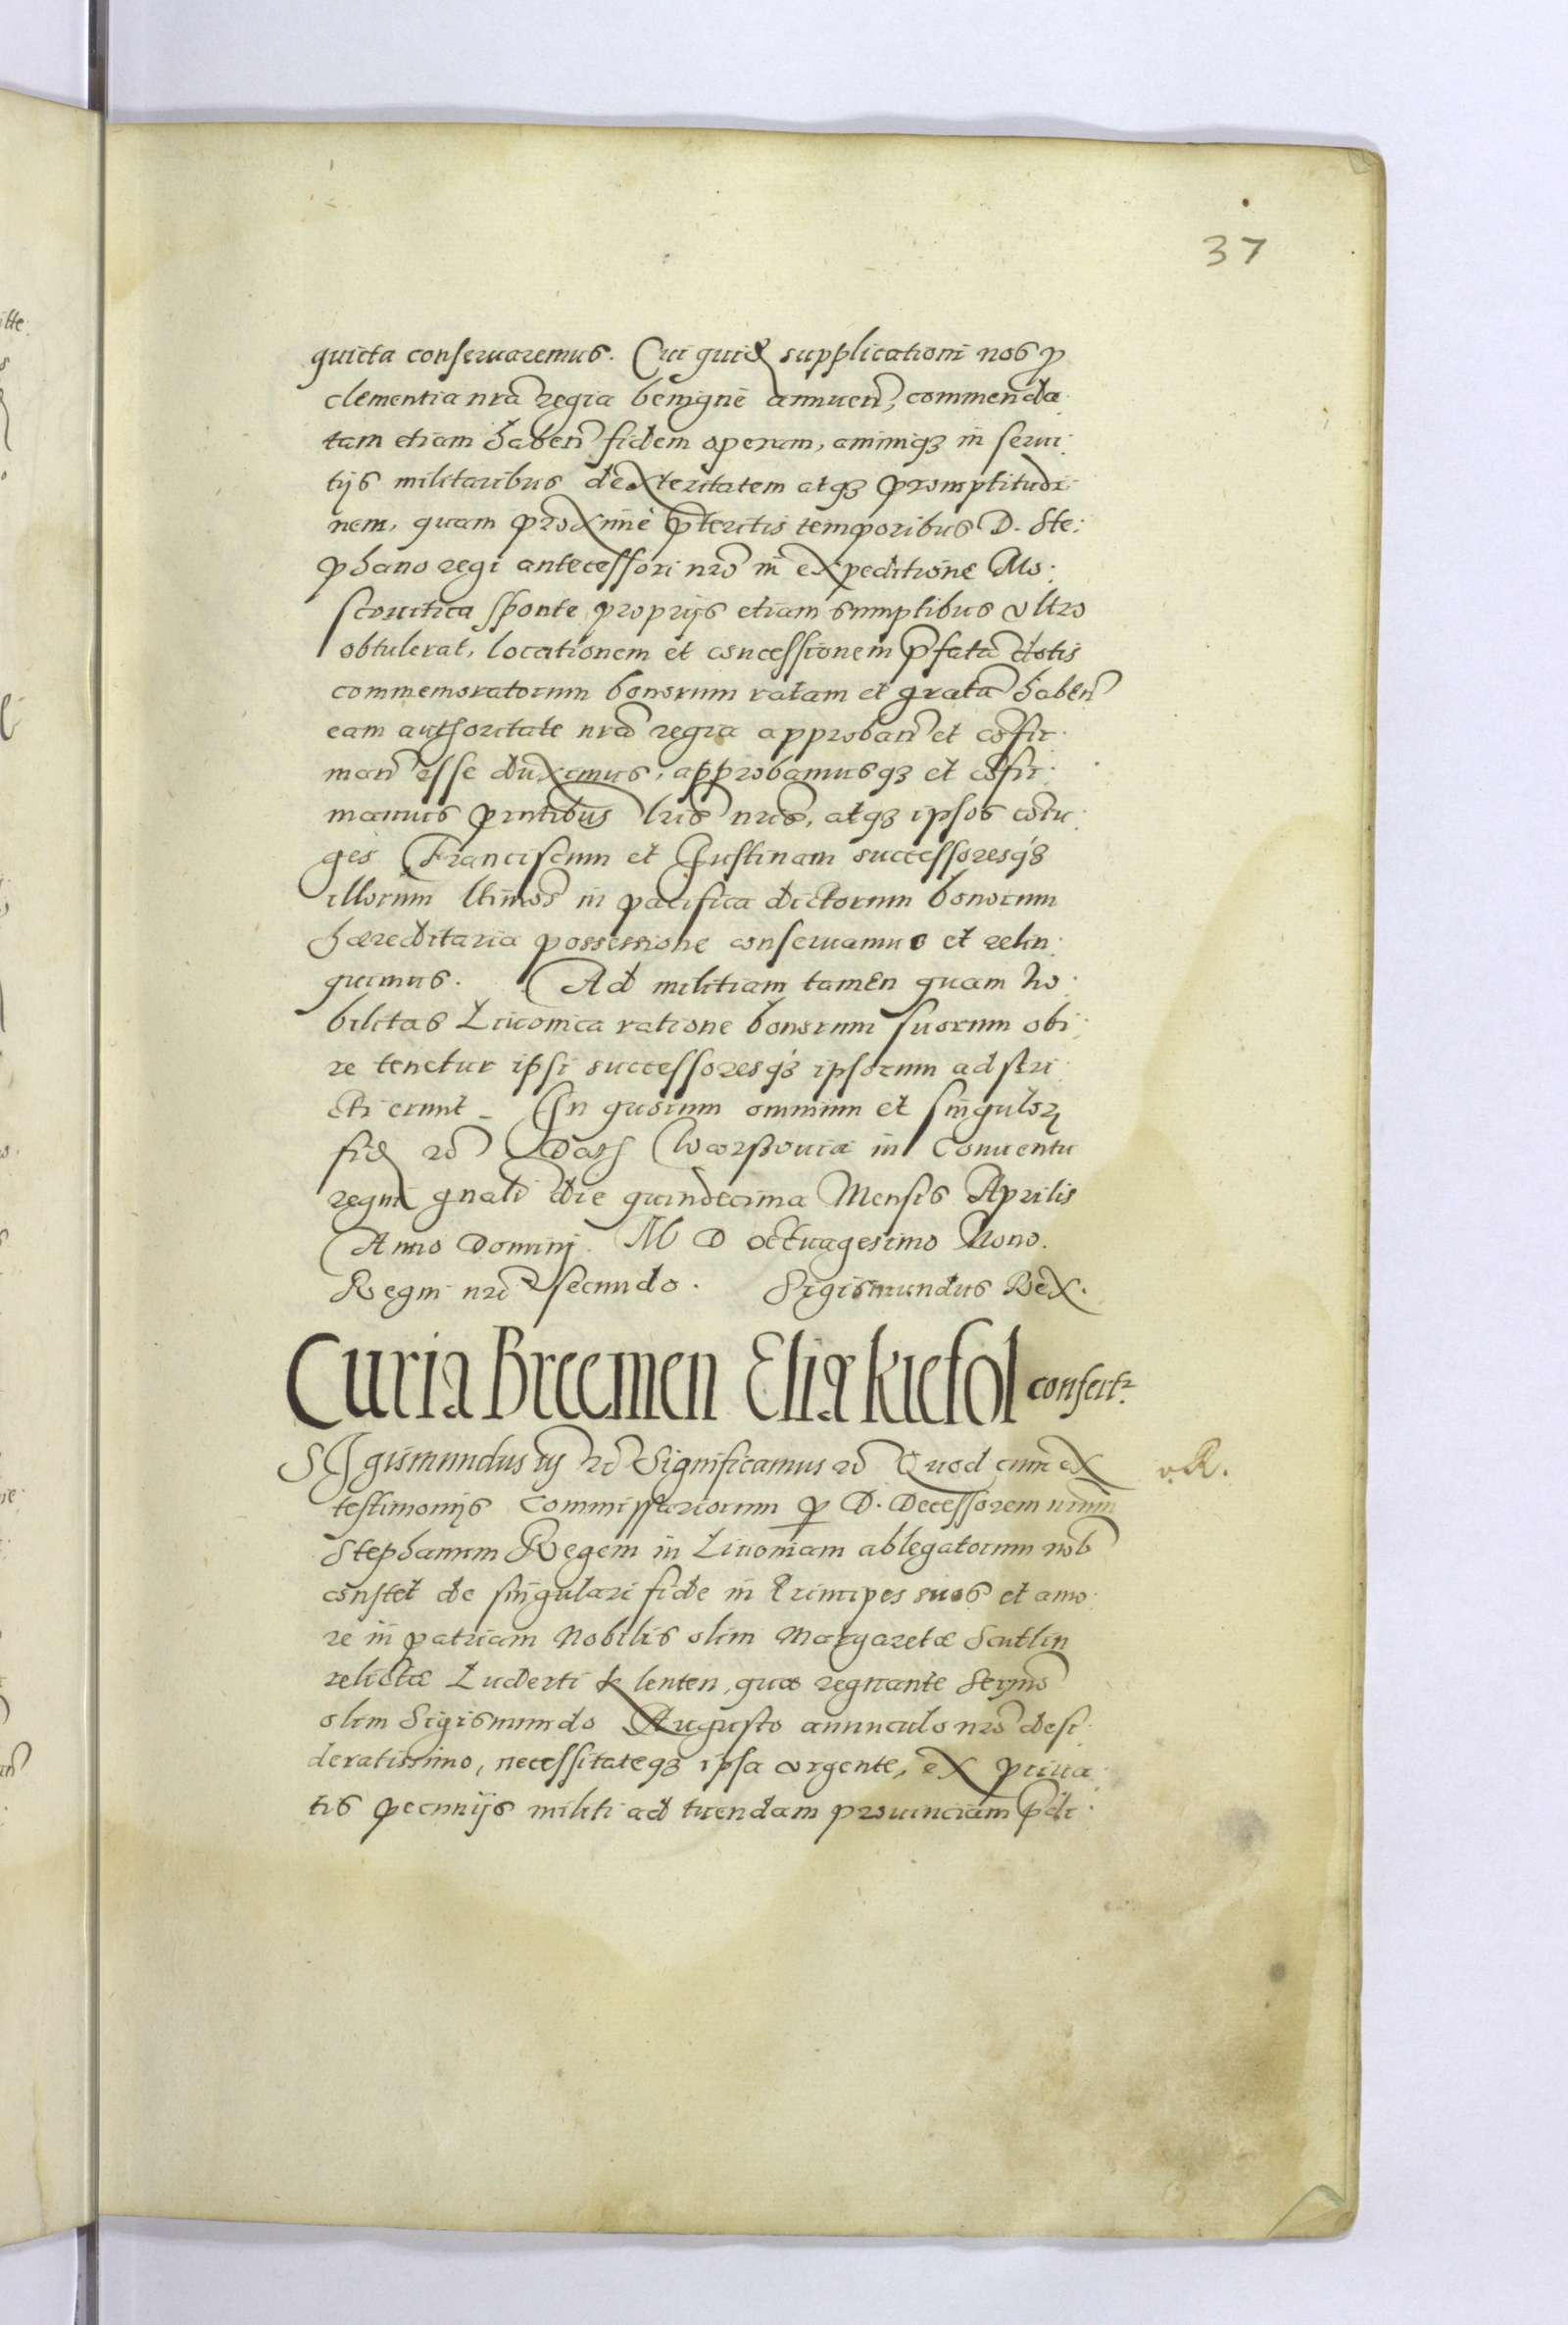 37
quieta conseruaremus. Cui quid supplicationi nos p
clementia nra regia benignè annuen, commenda
tam etiam haben fidem operam, animiq3 in serui:
tijs militaribus dexteritatem atq3 promptitudi:
nem, quam proximè pteritis temporibus D. Ste:
phano regi antecessori nro in expeditione Mo:
scouitica sponte proprijs etiam sumptibus vltro
obtulerat, locationem et concessionem pfata dotis
commemoratorum bonorum ratam et grata haben
eam authoritate nra regia approban et cofir:
man esse duximus, approbamusq3 et cofir:
mamus pntibus lris nris, atq3 ipsos coiu:
ges Franciscum et Justinam successoresq3
illorum ltimos in pacifica dictorum bonorum
hæreditaria possessione conseruamus et relin:
quimus. Ad militiam tamen quam no:
bilitas Liuonica ratione bonorum suorum obi:
re tenetur ipsi successoresq3 ipsorum adstri
cti erunt_ In quorum omnium et singulor
fid rc Dat Warssouiæ in Conuentu
regni gnali die quindecima Mensis Aprilis
Anno Domini M D octuagesimo Nono.
Regni nri secundo. Sigismundus Rex.
Curia Breemen Eliæ kiefol confert
SIgismundus iij rc Significamus rc Quod cum ex
v. R.
testimonijs Commissariorum p D. Decessorem nrum
Stephanum Regem in Liuoniam ablegatorum nob
constet de singulari fide in Principes suos et amo:
re in patriam Nobilis olim Margaretæ Scutlin
relictæ Luderti klenten, quæ regnante Serjmo
olim Sigismundo Augusto auunculo nro desi:
deratissimo, necessitateq3 ipsa vrgente, ex priua:
tis pecunijs militi ad tuendam prouinciam pdi: